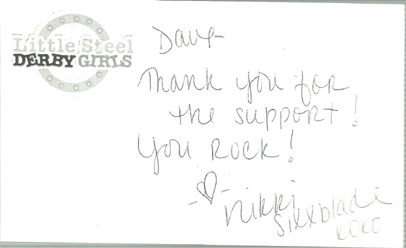 Little Steel
DERBY GIRLS
Dave
Thank you for
the support!
You Rock!
-♡-
Nikki
Sixxblade
xoxo